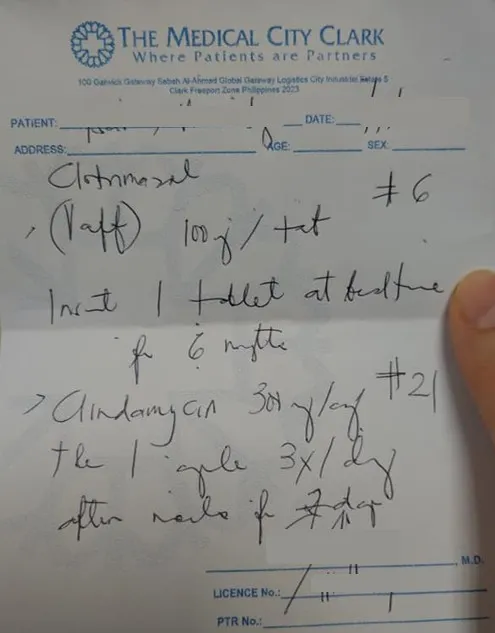 THE MEDICAL CITY CLARK
Where Patients are Partners
100 Gatwick Gateway Sabah Al-Ahmed Global Gateway Logistics City Industrial Estate 5
Clark Freeport Zone Philippines 2023
PATIENT: DATE:
ADDRESS: AGE: SEX:
Clotrimazol #6
(Vaff) 100mg/tab
Insert 1 tablet at bedtime
for 6 nights
> Clindamycin 300mg/cap #21
take 1 capsule 3x/day
after meals for 7 days
M.D.
LICENCE No.:
PTR No.: